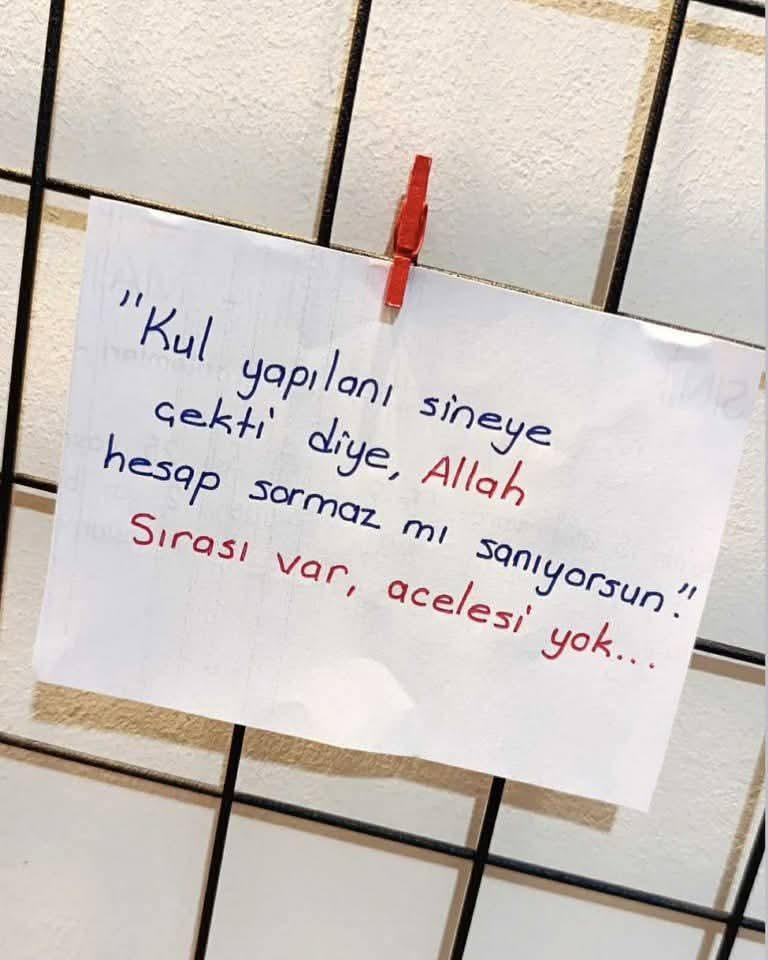 "Kul yapılanı sineye
çekti diye, Allah
hesap sormaz mı sanıyorsun."
Sırası var, acelesi yok...